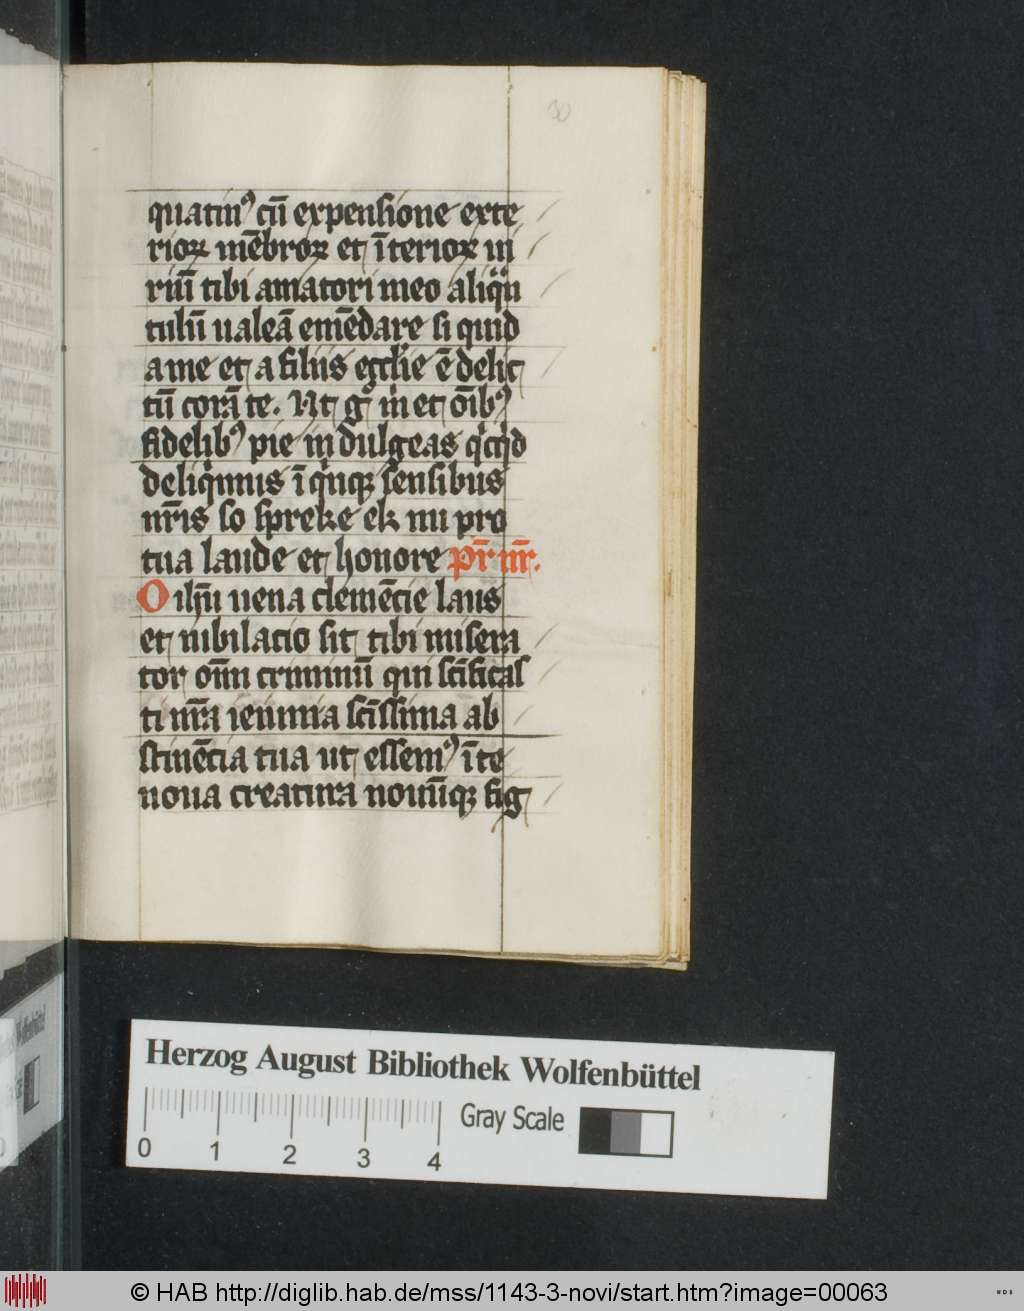 30
quatin⁹ cū expensione exte
rioꝝ mēbroꝝ et īterioꝝ ui
riū tibi amatori meo aliqͣn
tulū ualeā emēdare si quid
a me et a filiis eccl'ie ē delic
tū corā te. Ut gͦ m̄ et oīb⁹
fidelib⁹ pie indulgeas qͥcqͥd
deliqͥmus ī qͥnqꝫ sensibus
nr̄is so spreke ek nu pro
tua laude et honore pr̄ nr̄.
O ih̄u uena clemēcie laus
et iubilacio sit tibi misera
tor om̄i criminū qui sc̄ificas
ti nr̄a ieiunia sc̄issima ab
stinēcia tua ut essem⁹ ī te
noua creatura nouūqꝫ fig
Herzog August Bibliothek Wolfenbüttel
Gray Scale
0 1 2 3 4
© HAB http://diglib.hab.de/mss/1143-3-novi/start.htm?image=00063